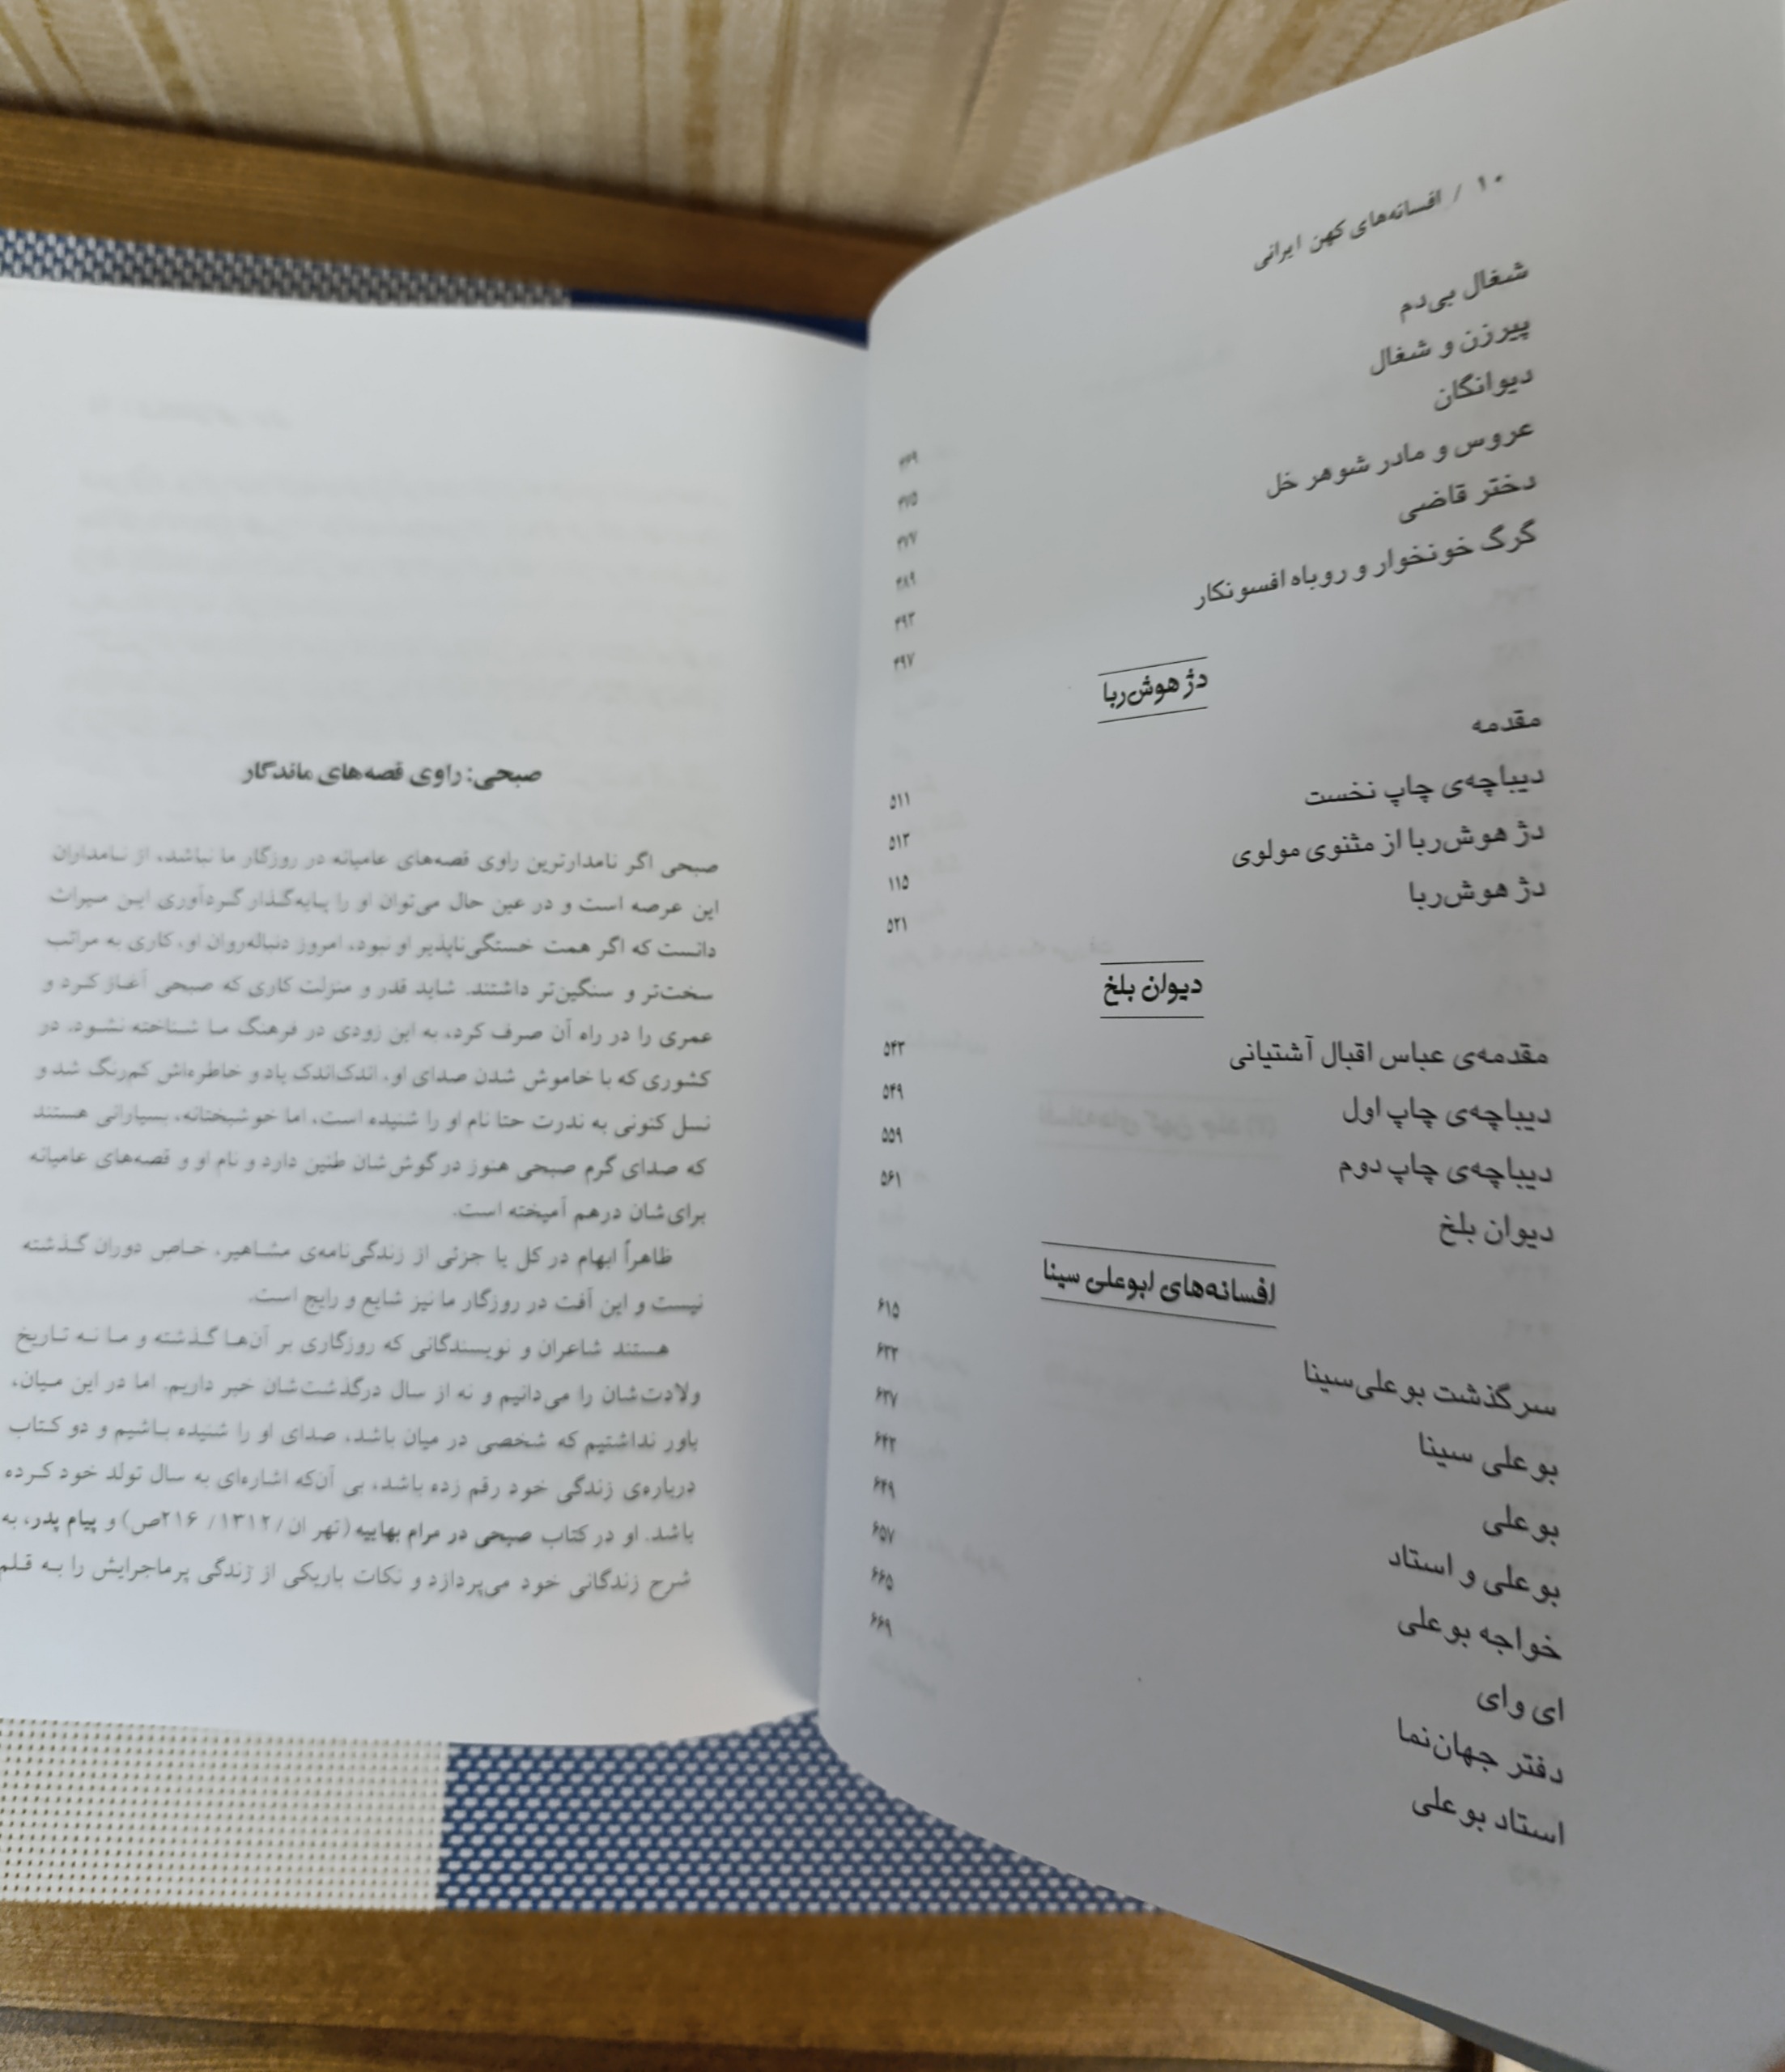 ۱۰ / افسانه‌های کهن ایرانی
شغال بی‌دم ۴۶۹
پیرزن و شغال ۴۷۵
دیوانگان ۴۷۷
عروس و مادر شوهر خل ۴۸۹
دختر قاضی ۴۹۳
گرگ خونخوار و روباه افسونکار ۴۹۷
دژ هوش‌ربا
مقدمه ۵۱۱
دیباچه‌ی چاپ نخست ۵۱۳
دژ هوش‌ربا از مثنوی مولوی ۱۱۵
دژ هوش‌ربا ۵۲۱
دیوان بلخ
مقدمه‌ی عباس اقبال آشتیانی ۵۴۳
دیباچه‌ی چاپ اول ۵۴۹
دیباچه‌ی چاپ دوم ۵۵۹
دیوان بلخ ۵۶۱
افسانه‌های ابوعلی سینا
سرگذشت بوعلی‌سینا ۶۱۵
بوعلی سینا ۶۲۳
بوعلی ۶۳۷
بوعلی و استاد ۶۴۳
خواجه بوعلی ۶۴۹
ای وای ۶۵۷
دفتر جهان‌نما ۶۶۵
استاد بوعلی ۶۶۹
صبحی: راوی قصه‌های ماندگار
صبحی اگر نامدارترین راوی قصه‌های عامیانه در روزگار ما نباشد، از نامداران
این عرصه است و در عین حال می‌توان او را پایه‌گذار گردآوری این میراث
دانست که اگر همت خستگی‌ناپذیر او نبود، امروز دنباله‌روان او، کاری به مراتب
سخت‌تر و سنگین‌تر داشتند. شاید قدر و منزلت کاری که صبحی آغاز کرد و
عمری را در راه آن صرف کرد، به این زودی در فرهنگ ما شناخته نشود. در
کشوری که با خاموش شدن صدای او، اندک‌اندک یاد و خاطره‌اش کم‌رنگ شد و
نسل کنونی به ندرت حتا نام او را شنیده است، اما خوشبختانه، بسیارانی هستند
که صدای گرم صبحی هنوز در گوش‌شان طنین دارد و نام او و قصه‌های عامیانه
برای‌شان درهم آمیخته است.
ظاهراً ابهام در کل یا جزئی از زندگی‌نامه‌ی مشاهیر، خاص دوران گذشته
نیست و این آفت در روزگار ما نیز شایع و رایج است.
هستند شاعران و نویسندگانی که روزگاری بر آن‌ها گذشته و ما نه تاریخ
ولادت‌شان را می‌دانیم و نه از سال درگذشت‌شان خبر داریم. اما در این میان،
باور نداشتیم که شخصی در میان باشد، صدای او را شنیده باشیم و دو کتاب
درباره‌ی زندگی خود رقم زده باشد، بی آن‌که اشاره‌ای به سال تولد خود کرده
باشد. او در کتاب صبحی در مرام بهاییه (تهران/ ۱۳۱۲/ ۲۱۶ص) و پیام پدر، به
شرح زندگانی خود می‌پردازد و نکات باریکی از زندگی پرماجرایش را به قلم